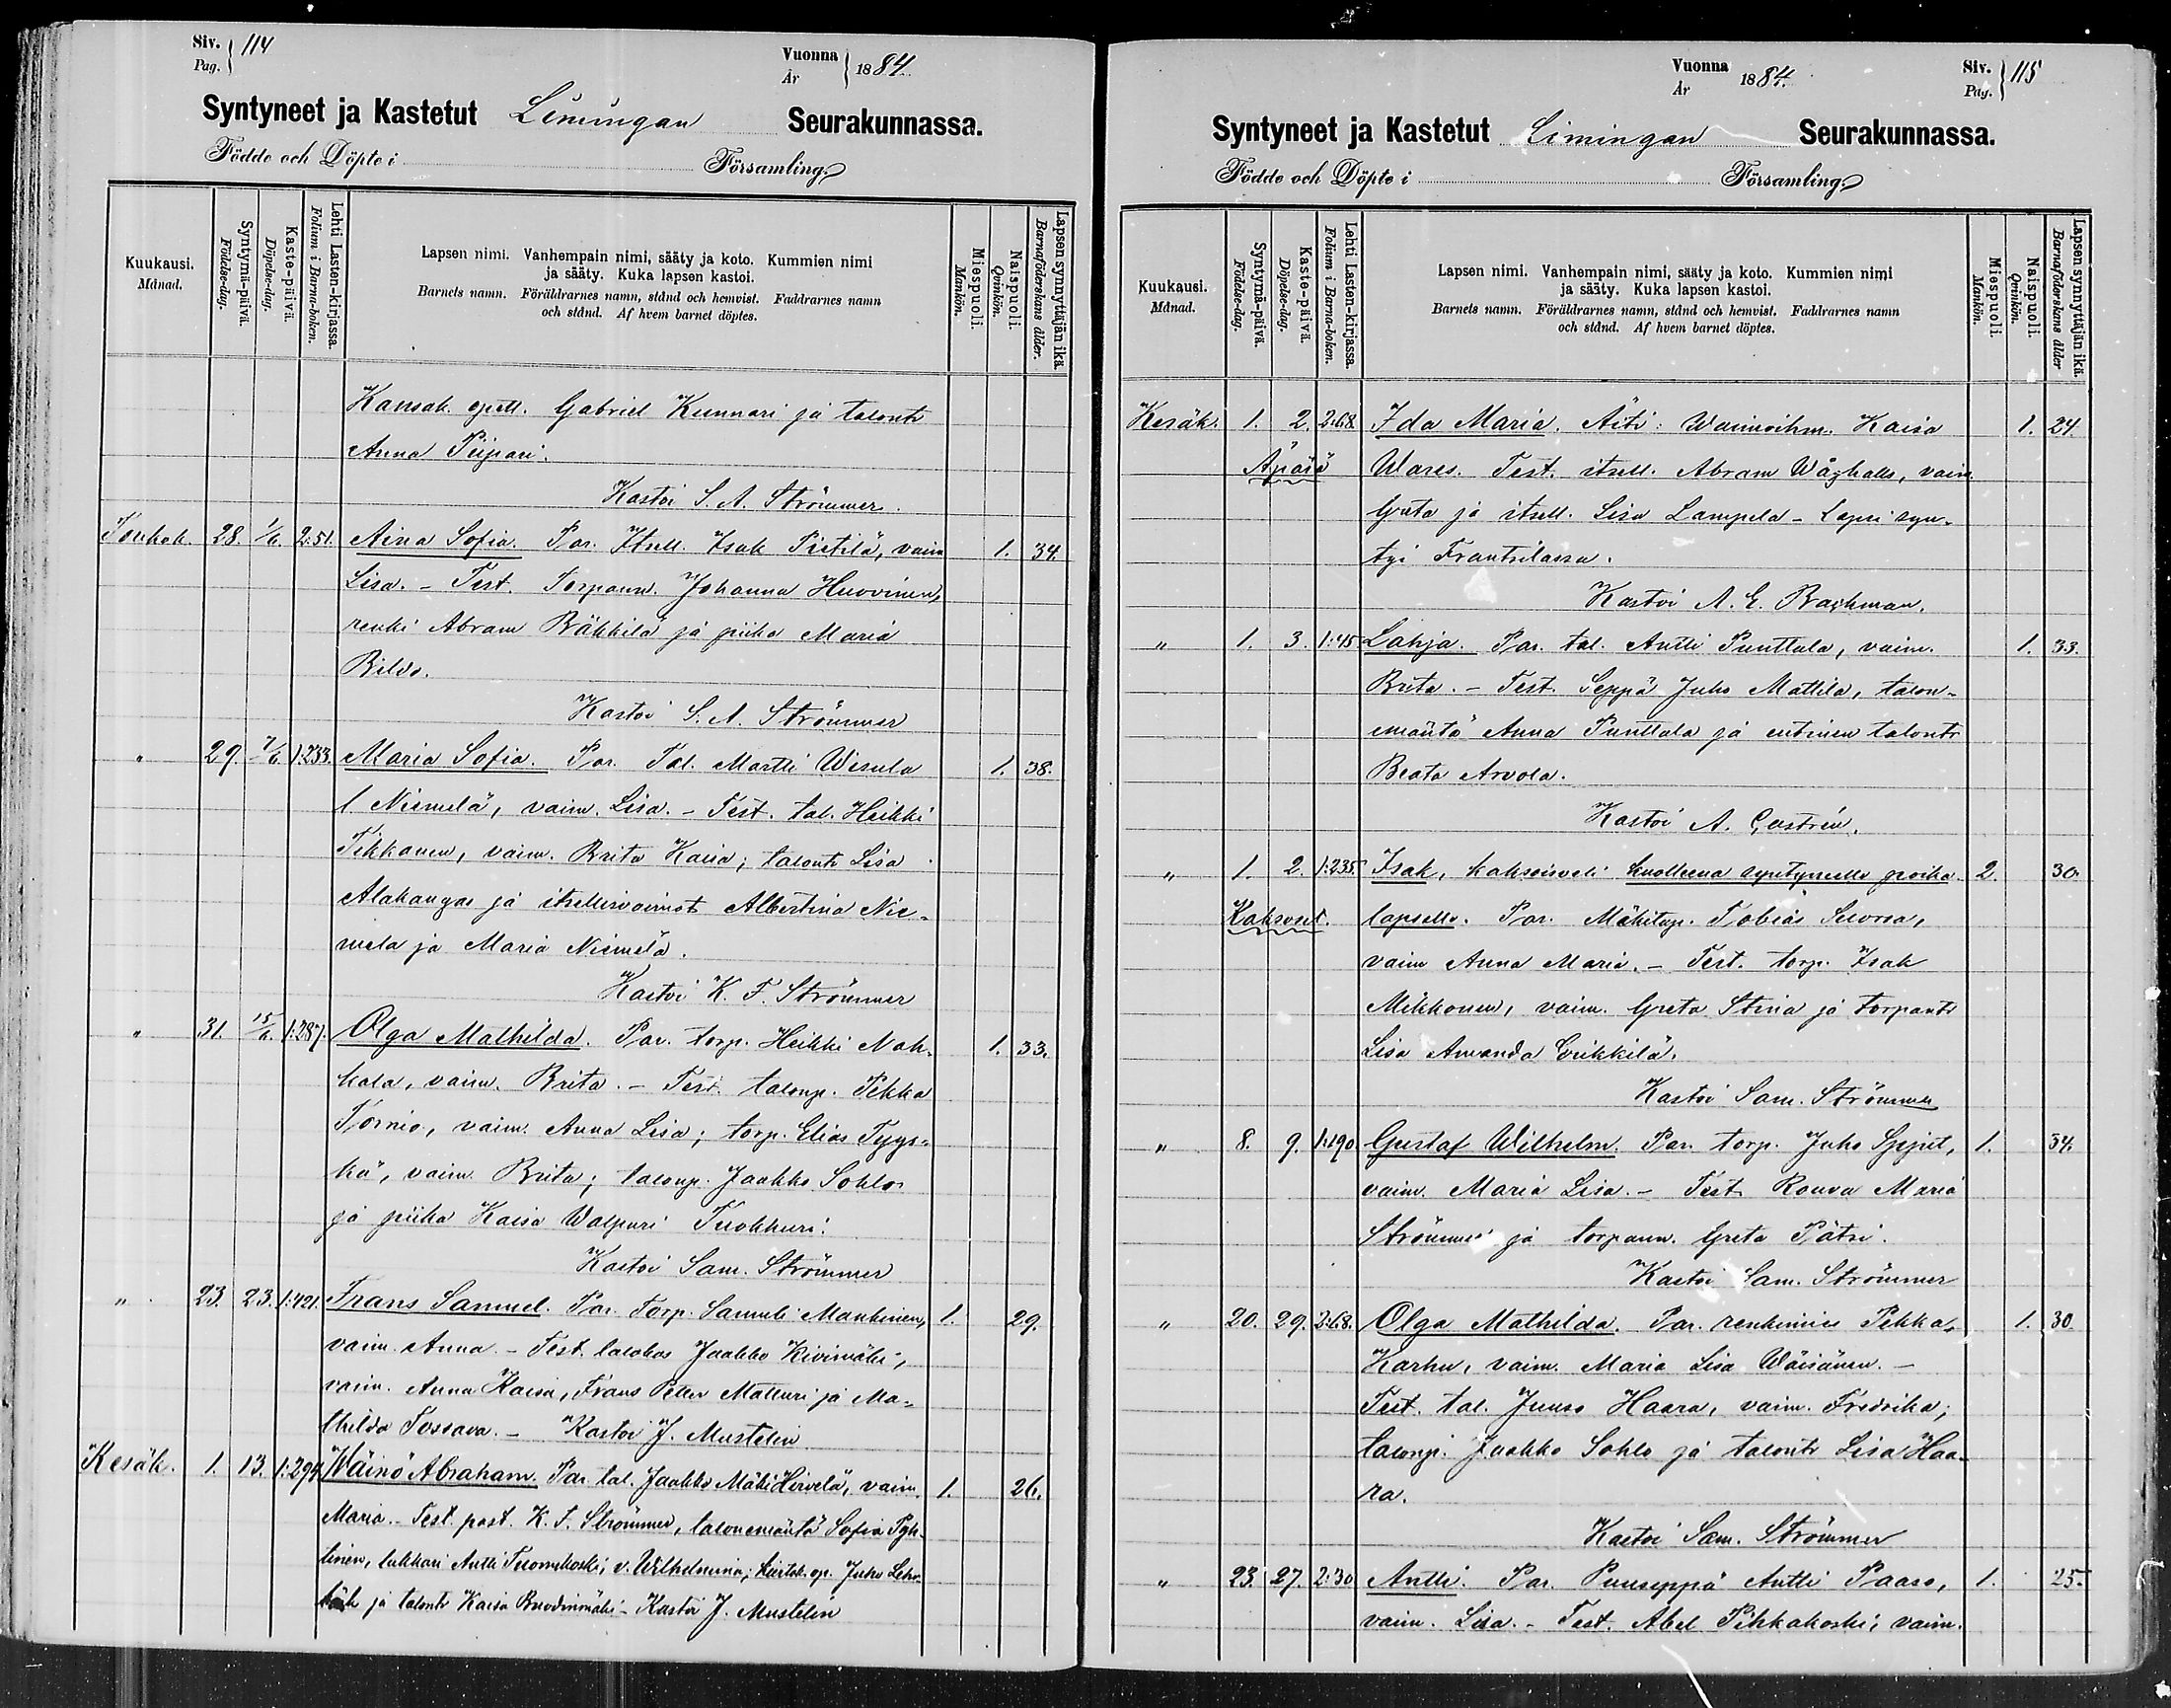 Siv. Pag. 114
Vuonna År 1884.
Syntyneet ja Kastetut Limingan Seurakunnassa.
Födde och Döpte i Församling.
Kuukausi. Månad.
Syntymä-päivä. Födelse-dag.
Kaste-päivä. Döpelse-dag.
Lehti Lasten-kirjassa. Folium i Barna-boken.
Lapsen nimi. Vanhempain nimi, sääty ja koto. Kummien nimi
ja sääty. Kuka lapsen kastoi.
Barnets namn. Föräldrarnes namn, stånd och hemvist. Faddrarnes namn
och stånd. Af hvem barnet döptes.
Miespuoli. Mankön.
Naispuoli. Qvinkön.
Lapsen synnyttäjän ikä. Barnaföderskans ålder.
Kansak. opett. Gabriel Kunnari ja talontr
Anna Piipari.
Kastoi S. A. Strömmer.
Toukok. 28. 1/6. 2:51. Aina Sofia. Par. Itsell. Isak Pietilä, vaim 1. 34.
Lisa. – Test. Torpanm. Johanna Huovinen,
renki Abram Räkkilä ja piika Maria
Bildo.
Kastoi S. A. Strömmer
" 29. 7/6. 1:233. Maria Sofia. Par. Tal. Martti Wesula 1. 38.
l. Niemelä, vaim. Lisa. – Test. tal. Heikki
Tikkanen, vaim. Brita Kaisa; talontr Lisa
Alakangas ja itsellisvaimot Albertina Nie-
mela ja Maria Niemelä.
Kastoi K. F. Strömmer
" 31. 15/6. 1:287. Olga Mathilda. Par. torp. Heikki Nah- 1. 33.
kala, vaim. Brita. – Test. talonp. Pekka
Tornio, vaim. Anna Lisa; torp. Elias Tyys-
kä, vaim. Brita; talonp. Jaakko Sohlo
ja piika Kaisa Walpuri Tuohkuri.
Kastoi Sam. Strömmer
" 23. 23. 1:421. Frans Samuel. Par. Torp. Samuli Mankinen, 1. 29.
vaim. Anna. – Test. Jaakko Kivimäki,
vaim. Anna Kaisa, Frans Petter Matturi ja Ma-
thilda Tossava. – Kastoi J. Mustelin
Kesäk. 1. 13. 1:294. Wäinö Abraham. Par. tal. Jaakko MäkiHirvelä, vaim. 1. 26.
Maria. – Test. past. K. F. Strömmer, talonemäntä Sofia Pyh-
tinen, lukkari Antti Tuomikoski, v. Wilhelmina; op. Juho
ja talontr Kaisa – Kastoi J. Mustelin
Vuonna År 1884.
Siv. Pag. 115
Syntyneet ja Kastetut Limingan Seurakunnassa.
Födde och Döpte i Församling.
Kuukausi. Månad.
Syntymä-päivä. Födelse-dag.
Kaste-päivä. Döpelse-dag.
Lehti Lasten-kirjassa. Folium i Barna-boken.
Lapsen nimi. Vanhempain nimi, sääty ja koto. Kummien nimi
ja sääty. Kuka lapsen kastoi.
Barnets namn. Föräldrarnes namn, stånd och hemvist. Faddrarnes namn
och stånd. Af hvem barnet döptes.
Miespuoli. Mankön.
Naispuoli. Qvinkön.
Lapsen synnyttäjän ikä. Barnaföderskans ålder
Kesäk. 1. 2. 2:68. Ida Maria. Äiti: Waimoihm. Kaisa 1. 24.
Äpärä Wares. Test. itsell. Abram Wåghals, vaim.
Greta ja itsell. Lisa Lampela – Lapsi syn-
tyi Frantsilassa.
Kastoi A. E. Brachman.
" 1. 3. 1:45 Lahja. Par. tal. Antti Punttala, vaim. 1. 33.
Brita. – Test. Seppä Juho Mattila, talon-
emäntä Anna Punttala ja entinen talontr
Beata Arvola.
Kastoi A. Castrén.
" 1. 2. 1:235. Isak, kaksoisveli kuolleena syntyneelle poika- 2. 30.
Kaksoset. lapselle. Par. Mäkitup. Tobias Suorsa,
vaim Anna Maria. – Test. torp. Isak
Mikkonen, vaim. Greta Stina ja torpantr
Lisa Amanda Erikkilä.
Kastoi Sam. Strömmer
" 8. 9. 1:190 Gustaf Wilhelm. Par. torp. Juho 1. 34.
vaim. Maria Lisa. – Test. Rouva Maria
Strömmer ja torpanm. Greta Pätsi.
Kastoi Sam. Strömmer
" 20. 29. 2:68. Olga Mathilda. Par. renkimies Pekka 1. 30.
Karhu, vaim. Maria Lisa Wäisänen. –
Test. tal. Juuso Haara, vaim. Fredrika;
talonp. Jaakko Sohlo ja talontr Lisa Haa-
ra.
Kastoi Sam. Strömmer
" 23. 27. 2:30 Antti. Par. Puuseppä Antti Paaso, 1. 25.
vaim. Lisa. – Test. Abel Pihkakoski, vaim.